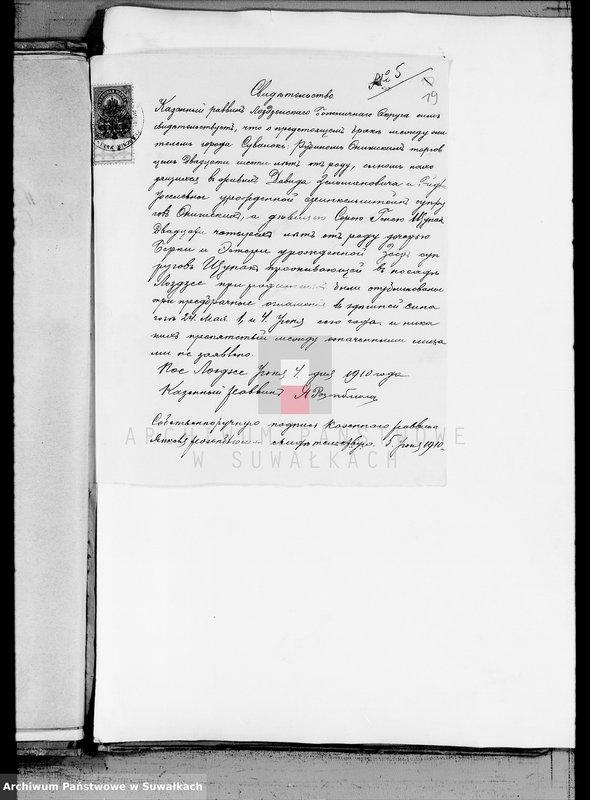 № 5
19
Свидѣтельство
Казенный раввинъ Лоздзейскаго Божничнаго Округа симъ
свидѣтельствуетъ, что о предстоящемъ бракѣ между жи
телемъ города Сувалокъ: Рувиномъ торгов
цемъ Двадцати шести лѣтъ отъ роду, сыномъ
дящимся въ Давида и
Іоселевны урожденной супру
говъ а дѣвицею Сорою Гнесею Щупакъ
Двадцати четырехъ лѣтъ отъ роду дочерью
Берки и урожденной суп
руговъ Щупакъ проживающей въ посадѣ
Лоздзее при были опубликованы
три предбрачные оглашенія въ здѣшней сина
гогѣ 24 Мая 1, и 4 Іюня сего года и ника
кихъ препятствій между означенными лица
ми не заявлено.
Пос Лоздзее Іюня 4 дня 1910 года
Казенный Раввинъ
Собственноручную подпись Казеннаго раввина
свидѣтельствую. 5 Іюня 1910
ARCHIWUM PAŃSTWOWE
W SUWAŁKACH
Archiwum Państwowe w Suwałkach